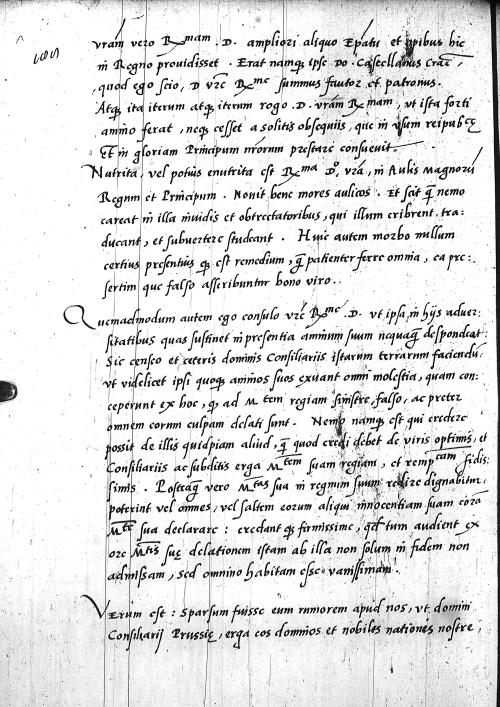 vram vero Rxmam .D. ampliori aliquo Epatu et opibus hic
in Regno providisset . Erat namq; ipse Do. Castellanus Crac:
, quod ego scio, D vrę Rxmę summus fautor et patronus.
Atq; ita iterum atq; iterum rogo .D. vram Rxmam, vt ista forti
animo ferat, neq; cesset a solitis obsequiis, quę in vsum reipub:
Et in gloriam Principum nrorum prestare consuevit.
Nutrita, vel potius enutrita est Rxma Do. vra, in Aulis magnorū
Regum et Principum . Novit bene mores aulicos . Et scit q nemo
careat in illa invidis et obtrectatoribus, qui illum cribrent, tra:
ducant, et subvertere studeant . Huic autem morbo nullum
certius presentius q; est remedium, q patienter ferre omnia, ea prę:
sertim quę falso asscribuntur bono viro.
Quemadmodum autem ego consulo vrę Rxmę .D. vt ipsa in hijs adver:
sitatibus quas sustinet in presentia animum suum nequaq despondeat:
Sic censeo et ceteris dominis Consiliariis istarum terrarum faciendū,
vt videlicet ipsi quoq; animos suos exuant omni molestia, quam con:
ceperunt ex hoc, q; ad Mtem regiam sinistre, falso, ac preter
omnem eorum culpam delati sunt . Nemo namq; est qui credere
possit de illis quidpiam aliud, q quod credi debet de viris optimis, et
Consiliariis ac subditis erga Mtem suam regiam, et remptam fidis:
simis . Postea q vero Mtas sua in regnum suum redire dignabitur,
poterint vel omnes, vel saltem eorum aliqui innocentiam suam corā
Mte sua declarare : credant q; firmissime, qd tum audient ex
ore Mtis suę delationem istam ab illa non solum in fidem non
admissam, sed omnino habitam esse vanissimam .
Verum est : Sparsum fuisse eum rumorem apud nos, vt domini
Consiliarij Prussię, erga eos dominos et nobiles nationis nostrę,